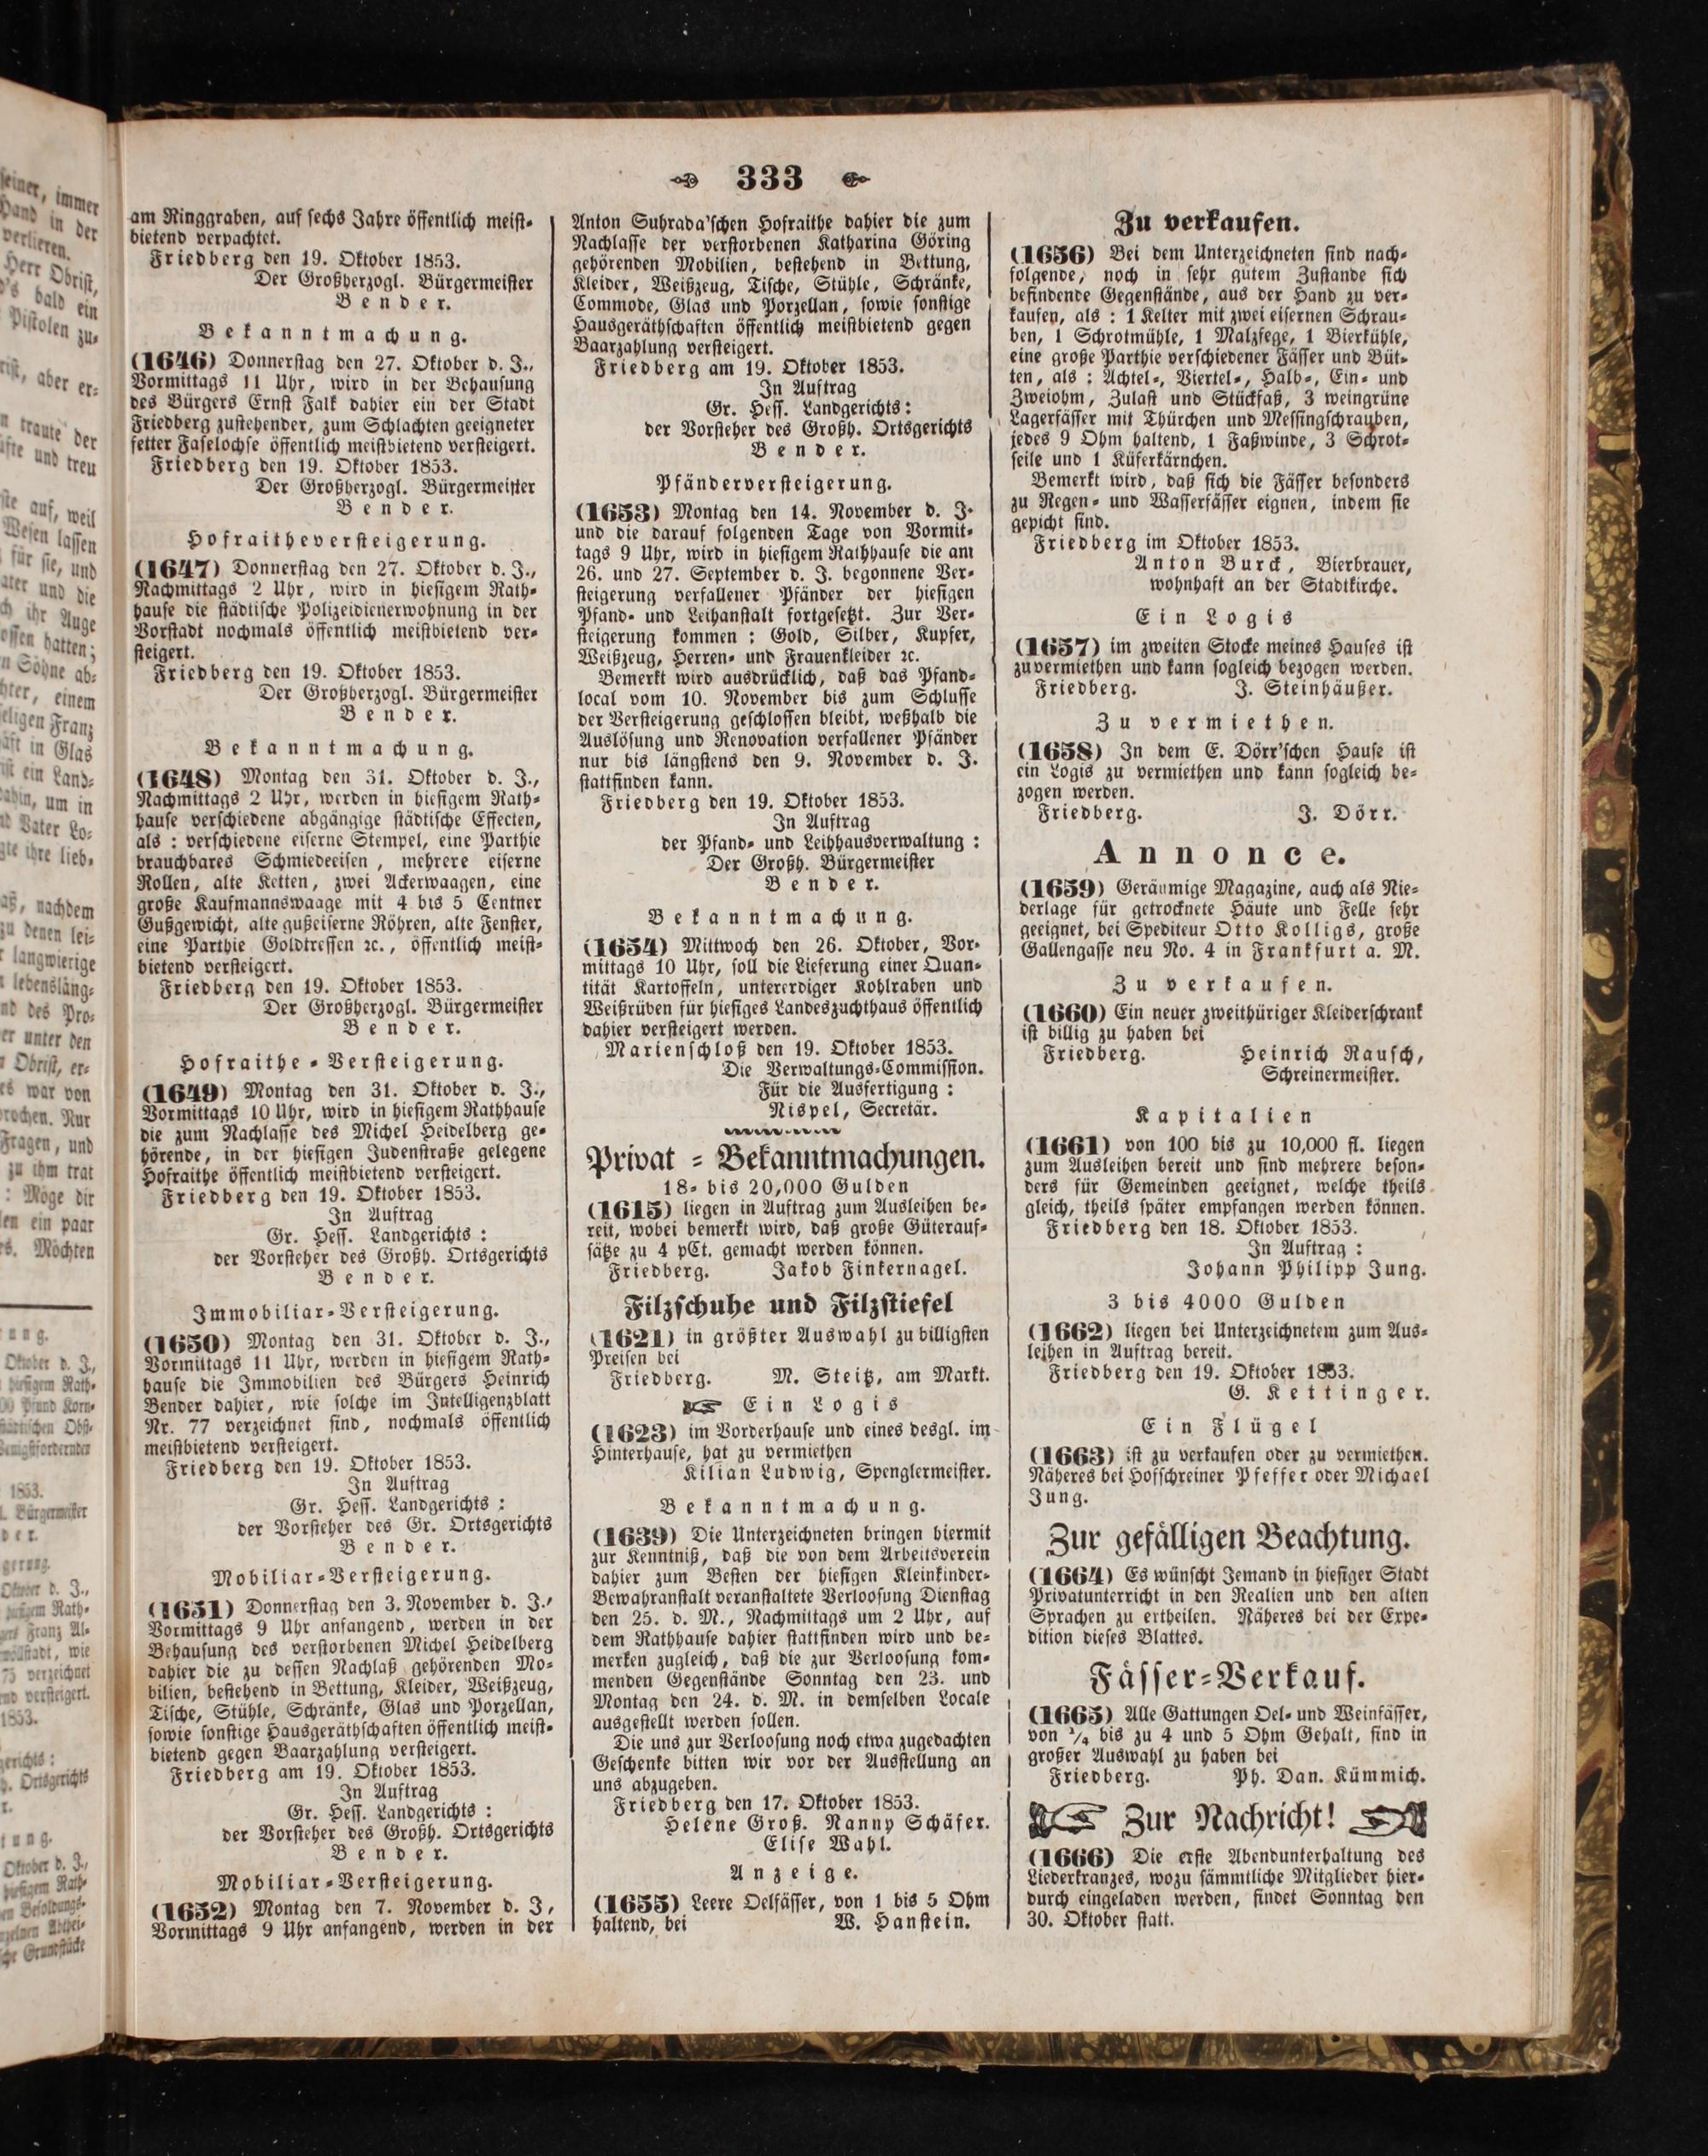 333
am Ringgraben, auf sechs Jahre öffentlich meist-
bietend verpachtet.
Friedberg den 19. Oktober 1853.
Der Großherzogl. Bürgermeister
Bender.
Bekanntmachung.
(1646) Donnerstag den 27. Oktober d. J.,
Vormittags 11 Uhr, wird in der Behausung
des Bürgers Ernst Falk dahier ein der Stadt
Friedberg zustehender, zum Schlachten geeigneter
fetter Faselochse öffentlich meistbietend versteigert.
Friedberg den 19. Oktober 1853.
Der Großherzogl. Bürgermeister
Bender.
Hofraitheversteigerung.
(1647) Donnerstag den 27. Oktober d. J.,
Nachmittags 2 Uhr, wird in hiesigem Rath-
hause die städtische Polizeidienerwohnung in der
Vorstadt nochmals öffentlich meistbietend ver-
steigert.
Friedberg den 19. Oktober 1853.
Der Großherzogl. Bürgermeister
Bender.
Bekanntmachung.
(1648) Montag den 31. Oktober d. J.,
Nachmittags 2 Uhr, werden in hiesigem Rath-
hause verschiedene abgängige städtische Effecten,
als : verschiedene eiserne Stempel, eine Parthie
brauchbares Schmiedeeisen, mehrere eiserne
Rollen, alte Ketten, zwei Ackerwaagen, eine
große Kaufmannswaage mit 4 bis 5 Centner
Gußgewicht, alte gußeiserne Röhren, alte Fenster,
eine Parthie Goldtressen ꝛc., öffentlich meist-
bietend versteigert.
Friedberg den 19. Oktober 1853.
Der Großherzogl. Bürgermeister
Bender.
Hofraithe-Versteigerung.
(1649) Montag den 31. Oktober d. J.,
Vormittags 10 Uhr, wird in hiesigem Rathhause
die zum Nachlasse des Michel Heidelberg ge-
hörende, in der hiesigen Judenstraße gelegene
Hofraithe öffentlich meistbietend versteigert.
Friedberg den 19. Oktober 1853.
In Auftrag
Gr. Hess. Landgerichts :
der Vorsteher des Großh. Ortsgerichts
Bender.
Immobiliar-Versteigerung.
(1650) Montag den 31. Oktober d. J.,
Vormittags 11 Uhr, werden in hiesigem Rath-
hause die Immobilien des Bürgers Heinrich
Bender dahier, wie solche im Intelligenzblatt
Nr. 77 verzeichnet sind, nochmals öffentlich
meistbietend versteigert.
Friedberg den 19. Oktober 1853.
In Auftrag
Gr. Hess. Landgerichts :
der Vorsteher des Gr. Ortsgerichts
Bender.
Mobiliar-Versteigerung.
(1651) Donnerstag den 3. November d. J.,
Vormittags 9 Uhr anfangend, werden in der
Behausung des verstorbenen Michel Heidelberg
dahier die zu dessen Nachlaß gehörenden Mo-
bilien, bestehend in Bettung, Kleider, Weißzeug,
Tische, Stühle, Schränke, Glas und Porzellan,
sowie sonstige Hausgeräthschaften öffentlich meist-
bietend gegen Baarzahlung versteigert.
Friedberg am 19. Oktober 1853.
In Auftrag
Gr. Hess. Landgerichts :
der Vorsteher des Großh. Ortsgerichts
Bender.
Mobiliar-Versteigerung.
(1652) Montag den 7. November d. J,
Vormittags 9 Uhr anfangend, werden in der
Anton Suhrada'schen Hofraithe dahier die zum
Nachlasse der verstorbenen Katharina Göring
gehörenden Mobilien, bestehend in Bettung,
Kleider, Weißzeug, Tische, Stühle, Schränke,
Commode, Glas und Porzellan, sowie sonstige
Hausgeräthschaften öffentlich meistbietend gegen
Baarzahlung versteigert.
Friedberg am 19. Oktober 1853.
In Auftrag
Gr. Hess. Landgerichts :
der Vorsteher des Großh. Ortsgerichts
Bender.
Pfänderversteigerung.
(1653) Montag den 14. November d. J.
und die darauf folgenden Tage von Vormit-
tags 9 Uhr, wird in hiesigem Rathhause die am
26. und 27. September d. J. begonnene Ver-
steigerung verfallener Pfänder der hiesigen
Pfand- und Leihanstalt fortgesetzt. Zur Ver-
steigerung kommen : Gold, Silber, Kupfer,
Weißzeug, Herren- und Frauenkleider ꝛc.
Bemerkt wird ausdrücklich, daß das Pfand-
local vom 10. November bis zum Schlusse
der Versteigerung geschlossen bleibt, weßhalb die
Auslösung und Renovation verfallener Pfänder
nur bis längstens den 9. November d. J.
stattfinden kann.
Friedberg den 19. Oktober 1853.
In Auftrag
der Pfand- und Leihhausverwaltung :
Der Großh. Bürgermeister
Bender.
Bekanntmachung.
(1654) Mittwoch den 26. Oktober, Vor-
mittags 10 Uhr, soll die Lieferung einer Quan-
tität Kartoffeln, untererdiger Kohlraben und
Weißrüben für hiesiges Landeszuchthaus öffentlich
dahier versteigert werden.
Marienschloß den 19. Oktober 1853.
Die Verwaltungs-Commission.
Für die Ausfertigung :
Nispel, Secretär.
Privat-Bekanntmachungen.
18- bis 20,000 Gulden
(1615) liegen in Auftrag zum Ausleihen be-
reit, wobei bemerkt wird, daß große Güterauf-
sätze zu 4 pCt. gemacht werden können.
Friedberg. Jakob Finkernagel.
Filzschuhe und Filzstiefel
(1621) in größter Auswahl zu billigsten
Preisen bei
Friedberg. M. Steitz, am Markt.
☞ Ein Logis
(1623) im Vorderhause und eines desgl. im
Hinterhause, hat zu vermiethen
Kilian Ludwig, Spenglermeister.
Bekanntmachung.
(1639) Die Unterzeichneten bringen hiermit
zur Kenntniß, daß die von dem Arbeitsverein
dahier zum Besten der hiesigen Kleinkinder-
Bewahranstalt veranstaltete Verloosung Dienstag
den 25. d. M., Nachmittags um 2 Uhr, auf
dem Rathhause dahier stattfinden wird und be-
merken zugleich, daß die zur Verloosung kom-
menden Gegenstände Sonntag den 23. und
Montag den 24. d. M. in demselben Locale
ausgestellt werden sollen.
Die uns zur Verloosung noch etwa zugedachten
Geschenke bitten wir vor der Ausstellung an
uns abzugeben.
Friedberg den 17. Oktober 1853.
Helene Groß. Nanny Schäfer.
Elise Wahl.
Anzeige.
(1655) Leere Oelfässer, von 1 bis 5 Ohm
haltend, bei W. Hanstein.
Zu verkaufen.
(1656) Bei dem Unterzeichneten sind nach-
folgende, noch in sehr gutem Zustande sich
befindende Gegenstände, aus der Hand zu ver-
kaufen, als : 1 Kelter mit zwei eisernen Schrau-
ben, 1 Schrotmühle, 1 Malzfege, 1 Bierkühle,
eine große Parthie verschiedener Fässer und Büt-
ten, als : Achtel-, Viertel-, Halb-, Ein- und
Zweiohm, Zulast und Stückfaß, 3 weingrüne
Lagerfässer mit Thürchen und Messingschrauben,
jedes 9 Ohm haltend, 1 Faßwinde, 3 Schrot-
seile und 1 Küferkärnchen.
Bemerkt wird, daß sich die Fässer besonders
zu Regen- und Wasserfässer eignen, indem sie
gepicht sind.
Friedberg im Oktober 1853.
Anton Burck, Bierbrauer,
wohnhaft an der Stadtkirche.
Ein Logis
(1657) im zweiten Stocke meines Hauses ist
zuvermiethen und kann sogleich bezogen werden.
Friedberg. J. Steinhäußer.
Zu vermiethen.
(1658) In dem E. Dörr'schen Hause ist
ein Logis zu vermiethen und kann sogleich be-
zogen werden.
Friedberg. J. Dörr.
Annonce.
(1659) Geräumige Magazine, auch als Nie-
derlage für getrocknete Häute und Felle sehr
geeignet, bei Spediteur Otto Kolligs, große
Gallengasse neu No. 4 in Frankfurt a. M.
Zu verkaufen.
(1660) Ein neuer zweithüriger Kleiderschrank
ist billig zu haben bei
Friedberg. Heinrich Rausch,
Schreinermeister.
Kapitalien
(1661) von 100 bis zu 10,000 fl. liegen
zum Ausleihen bereit und sind mehrere beson-
ders für Gemeinden geeignet, welche theils
gleich, theils später empfangen werden können.
Friedberg den 18. Oktober 1853.
In Auftrag :
Johann Philipp Jung.
3 bis 4000 Gulden
(1662) liegen bei Unterzeichnetem zum Aus-
leihen in Auftrag bereit.
Friedberg den 19. Oktober 1853.
G. Kettinger.
Ein Flügel
(1663) ist zu verkaufen oder zu vermiethen.
Näheres bei Hofschreiner Pfeffer oder Michael
Jung.
Zur gefälligen Beachtung.
(1664) Es wünscht Jemand in hiesiger Stadt
Privatunterricht in den Realien und den alten
Sprachen zu ertheilen. Näheres bei der Expe-
dition dieses Blattes.
Fässer-Verkauf.
(1665) Alle Gattungen Oel- und Weinfässer,
von ¼ bis zu 4 und 5 Ohm Gehalt, sind in
großer Auswahl zu haben bei
Friedberg. Ph. Dan. Kümmich.
Zur Nachricht!
(1666) Die erste Abendunterhaltung des
Liederkranzes, wozu sämmtliche Mitglieder hier-
durch eingeladen werden, findet Sonntag den
30. Oktober statt.